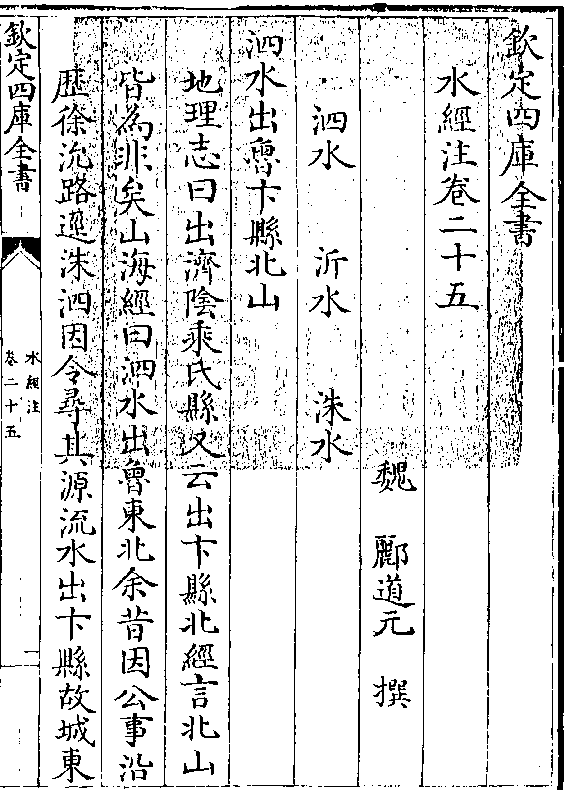 欽定四庫全書
水經注卷二十五
魏 酈道元 撰
泗水 沂水 洙水
泗水出魯卞縣北山
地理志曰出濟陰乘氏縣又云出卞縣北經言北山
皆為非矣山海經曰泗水出魯東北余昔因公事沿
歷徐沇路逕洙泗因令尋其源流水出卞縣故城東
欽定四庫全書
水經注
卷二十五
一